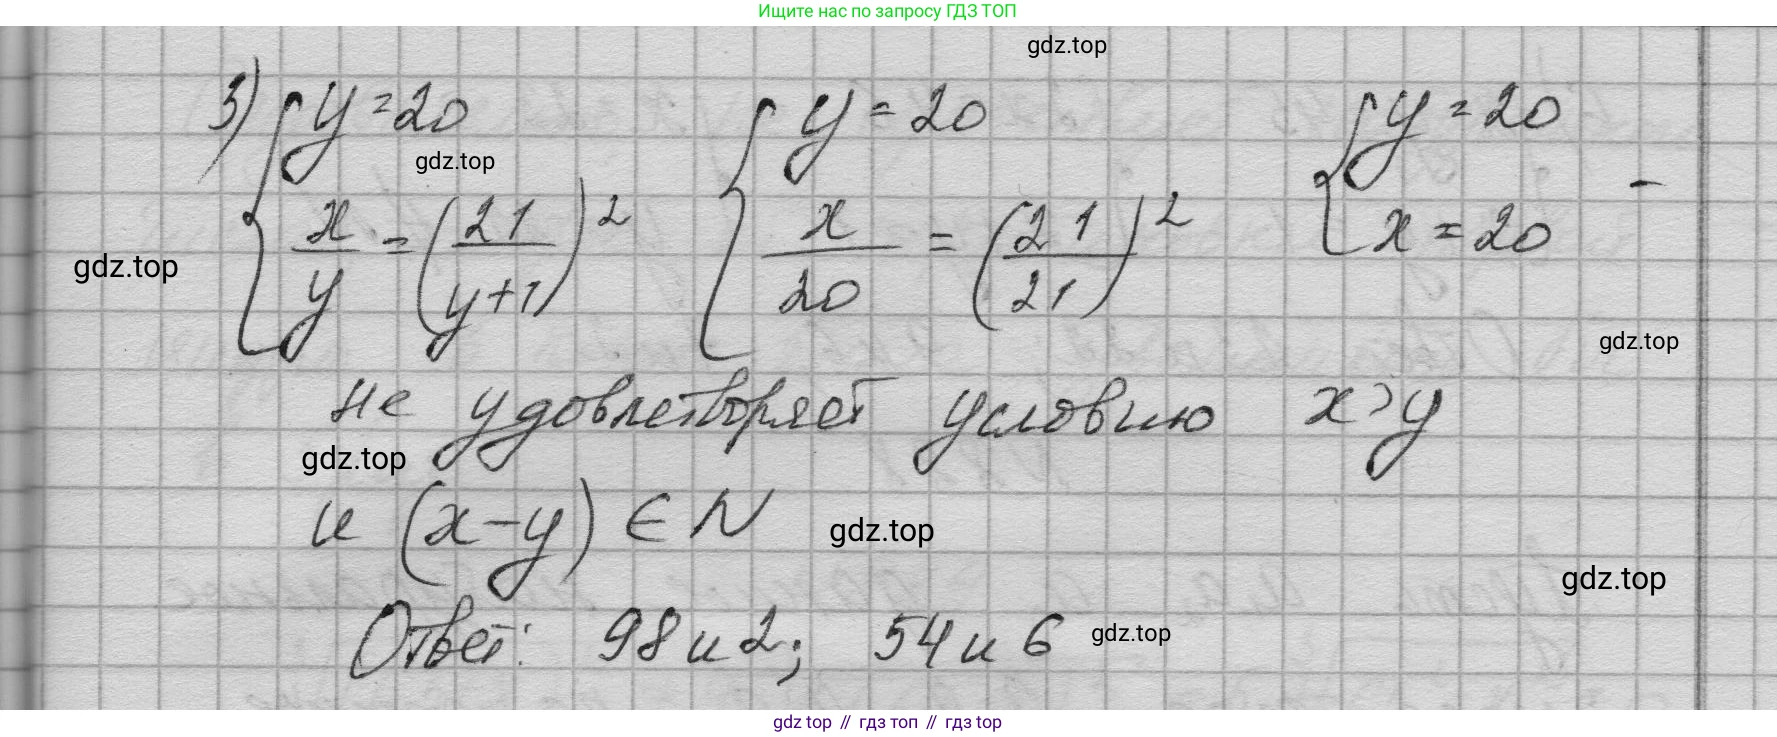 Ищите нас по запросу ГДЗ ТОП
gdz.top
3) { y = 20 { y = 20 { y = 20 –
gdz.top
x/y = (21/(y+1))² x/20 = (21/21)² x = 20
gdz.top
gdz.top
не удовлетворяет условию x > y
gdz.top
и (x-y) ∈ N
gdz.top
gdz.top
Ответ: 98 и 2; 54 и 6
gdz.top
gdz top // гдз топ // гдз top